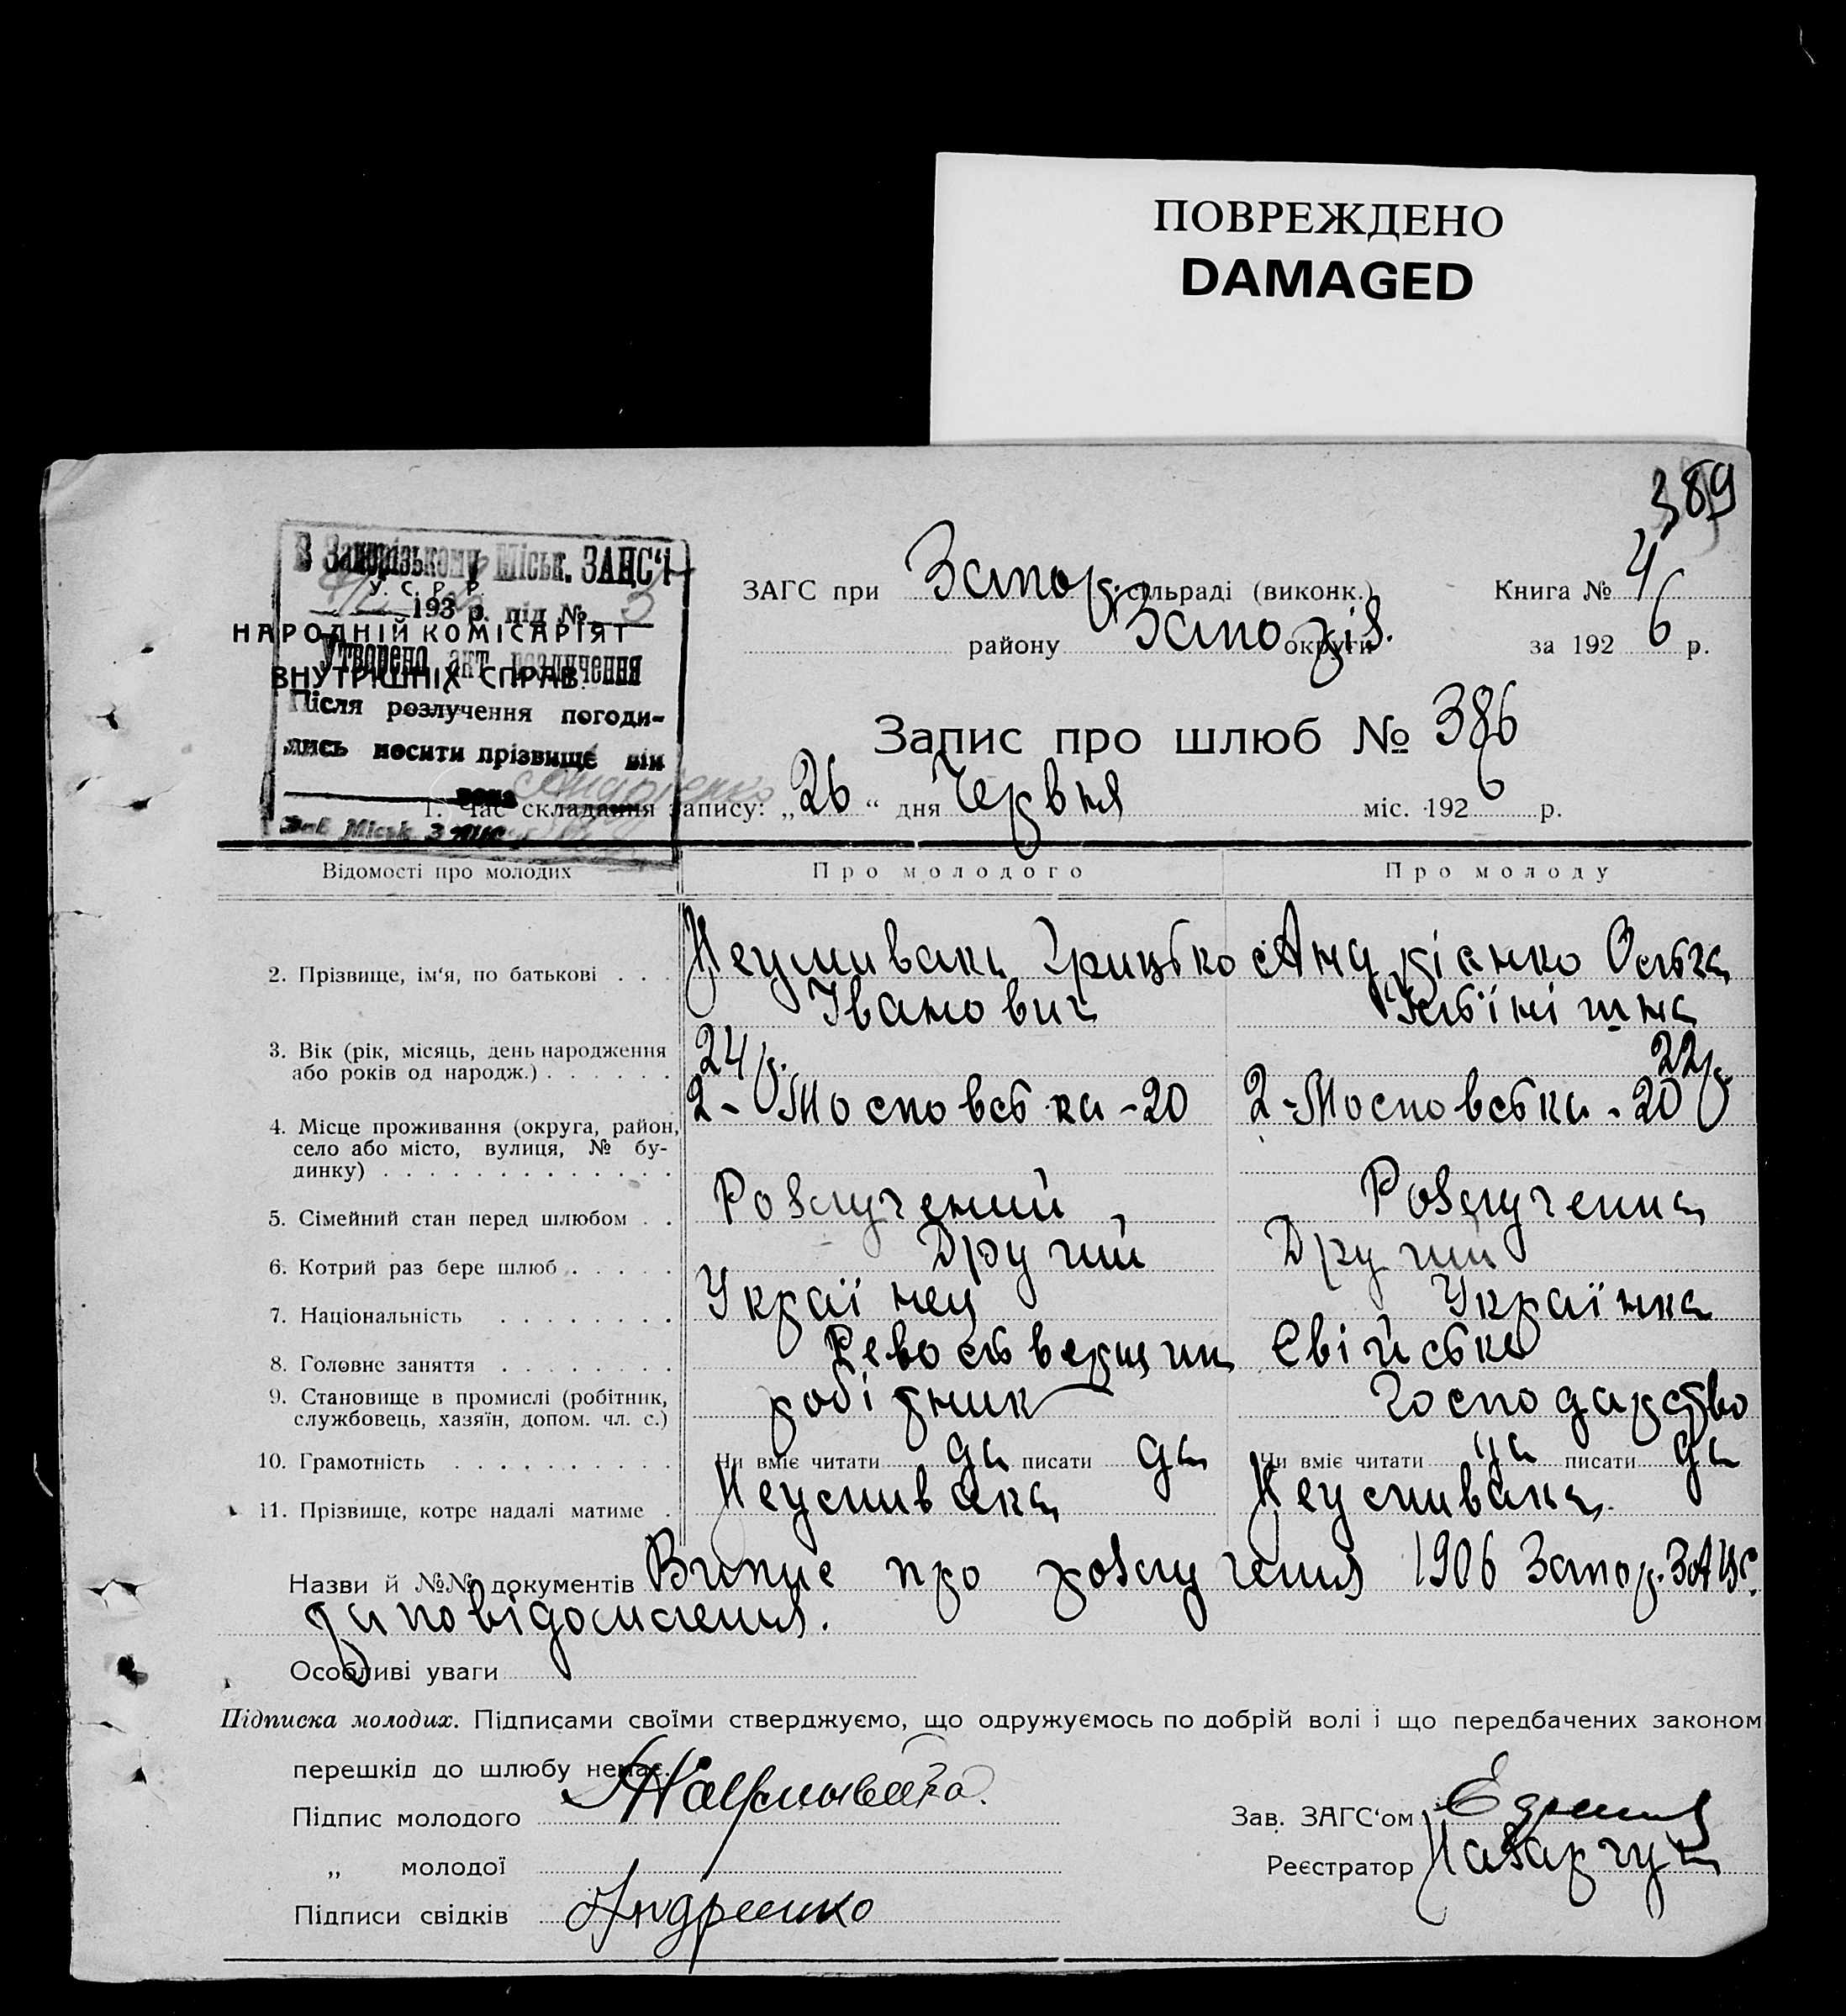 ПОВРЕЖДЕНО
DAMAGED
389
В Запорізькому Міськ. ЗАЦС'і
У. С. Р. Р.
193 р. під №
НАРОДНІЙ КОМІСАРІЯТ
Утворено акт розлучення
ВНУТРІШНІХ СПРАВ.
Після розлучення погоди-
лись носити прізвище він
вона Андрієнко
Зав. Міськ ЗАЦС
ЗАГС при Запор. сільраді (виконк.) Книга № 4
району Запоріз. округи за 1926 р.
Запис про шлюб № 386
1. Час складання запису: „26“ дня Червня міс. 1926 р.
Відомості про молодих Про молодого Про молоду
2. Прізвище, ім'я, по батькові . . . Неумивака Грицько Андріенко Ольга
Іванович
3. Вік (рік, місяць, день народження 24 р. 22 р.
або років од народж.) . . . . . .
2-Московська-20 2-Московська-20
4. Місце проживання (округа, район,
село або місто, вулиця, № бу-
динку) . . . . . . . . . . . . .
5. Сімейний стан перед шлюбом . . Розлучений Розлучена
6. Котрий раз бере шлюб . . . . . Другий Другий
7. Національність . . . . . . . . Українец Українка
8. Головне заняття . . . . . . . . Свійське
9. Становище в промислі (робітник, робітник Господарство
службовець, хазяїн, допом. чл. с.)
10. Грамотність . . . . . . . . . . Чи вміє читати да писати да Чи вміє читати да писати да
11. Прізвище, котре надалі матиме . Неумивака Неумивака.
Назви й №№ документів Випис про розлучення 1906 Запор. ЗАЦС.
та повідомлення.
Особливі уваги
Підписка молодих. Підписами своїми стверджуємо, що одружуємось по добрій волі і що передбачених законом
перешкід до шлюбу немає.
Підпис молодого Зав. ЗАГС'ом
„ молодої Реєстратор Назарчук
Підписи свідків Андриенко